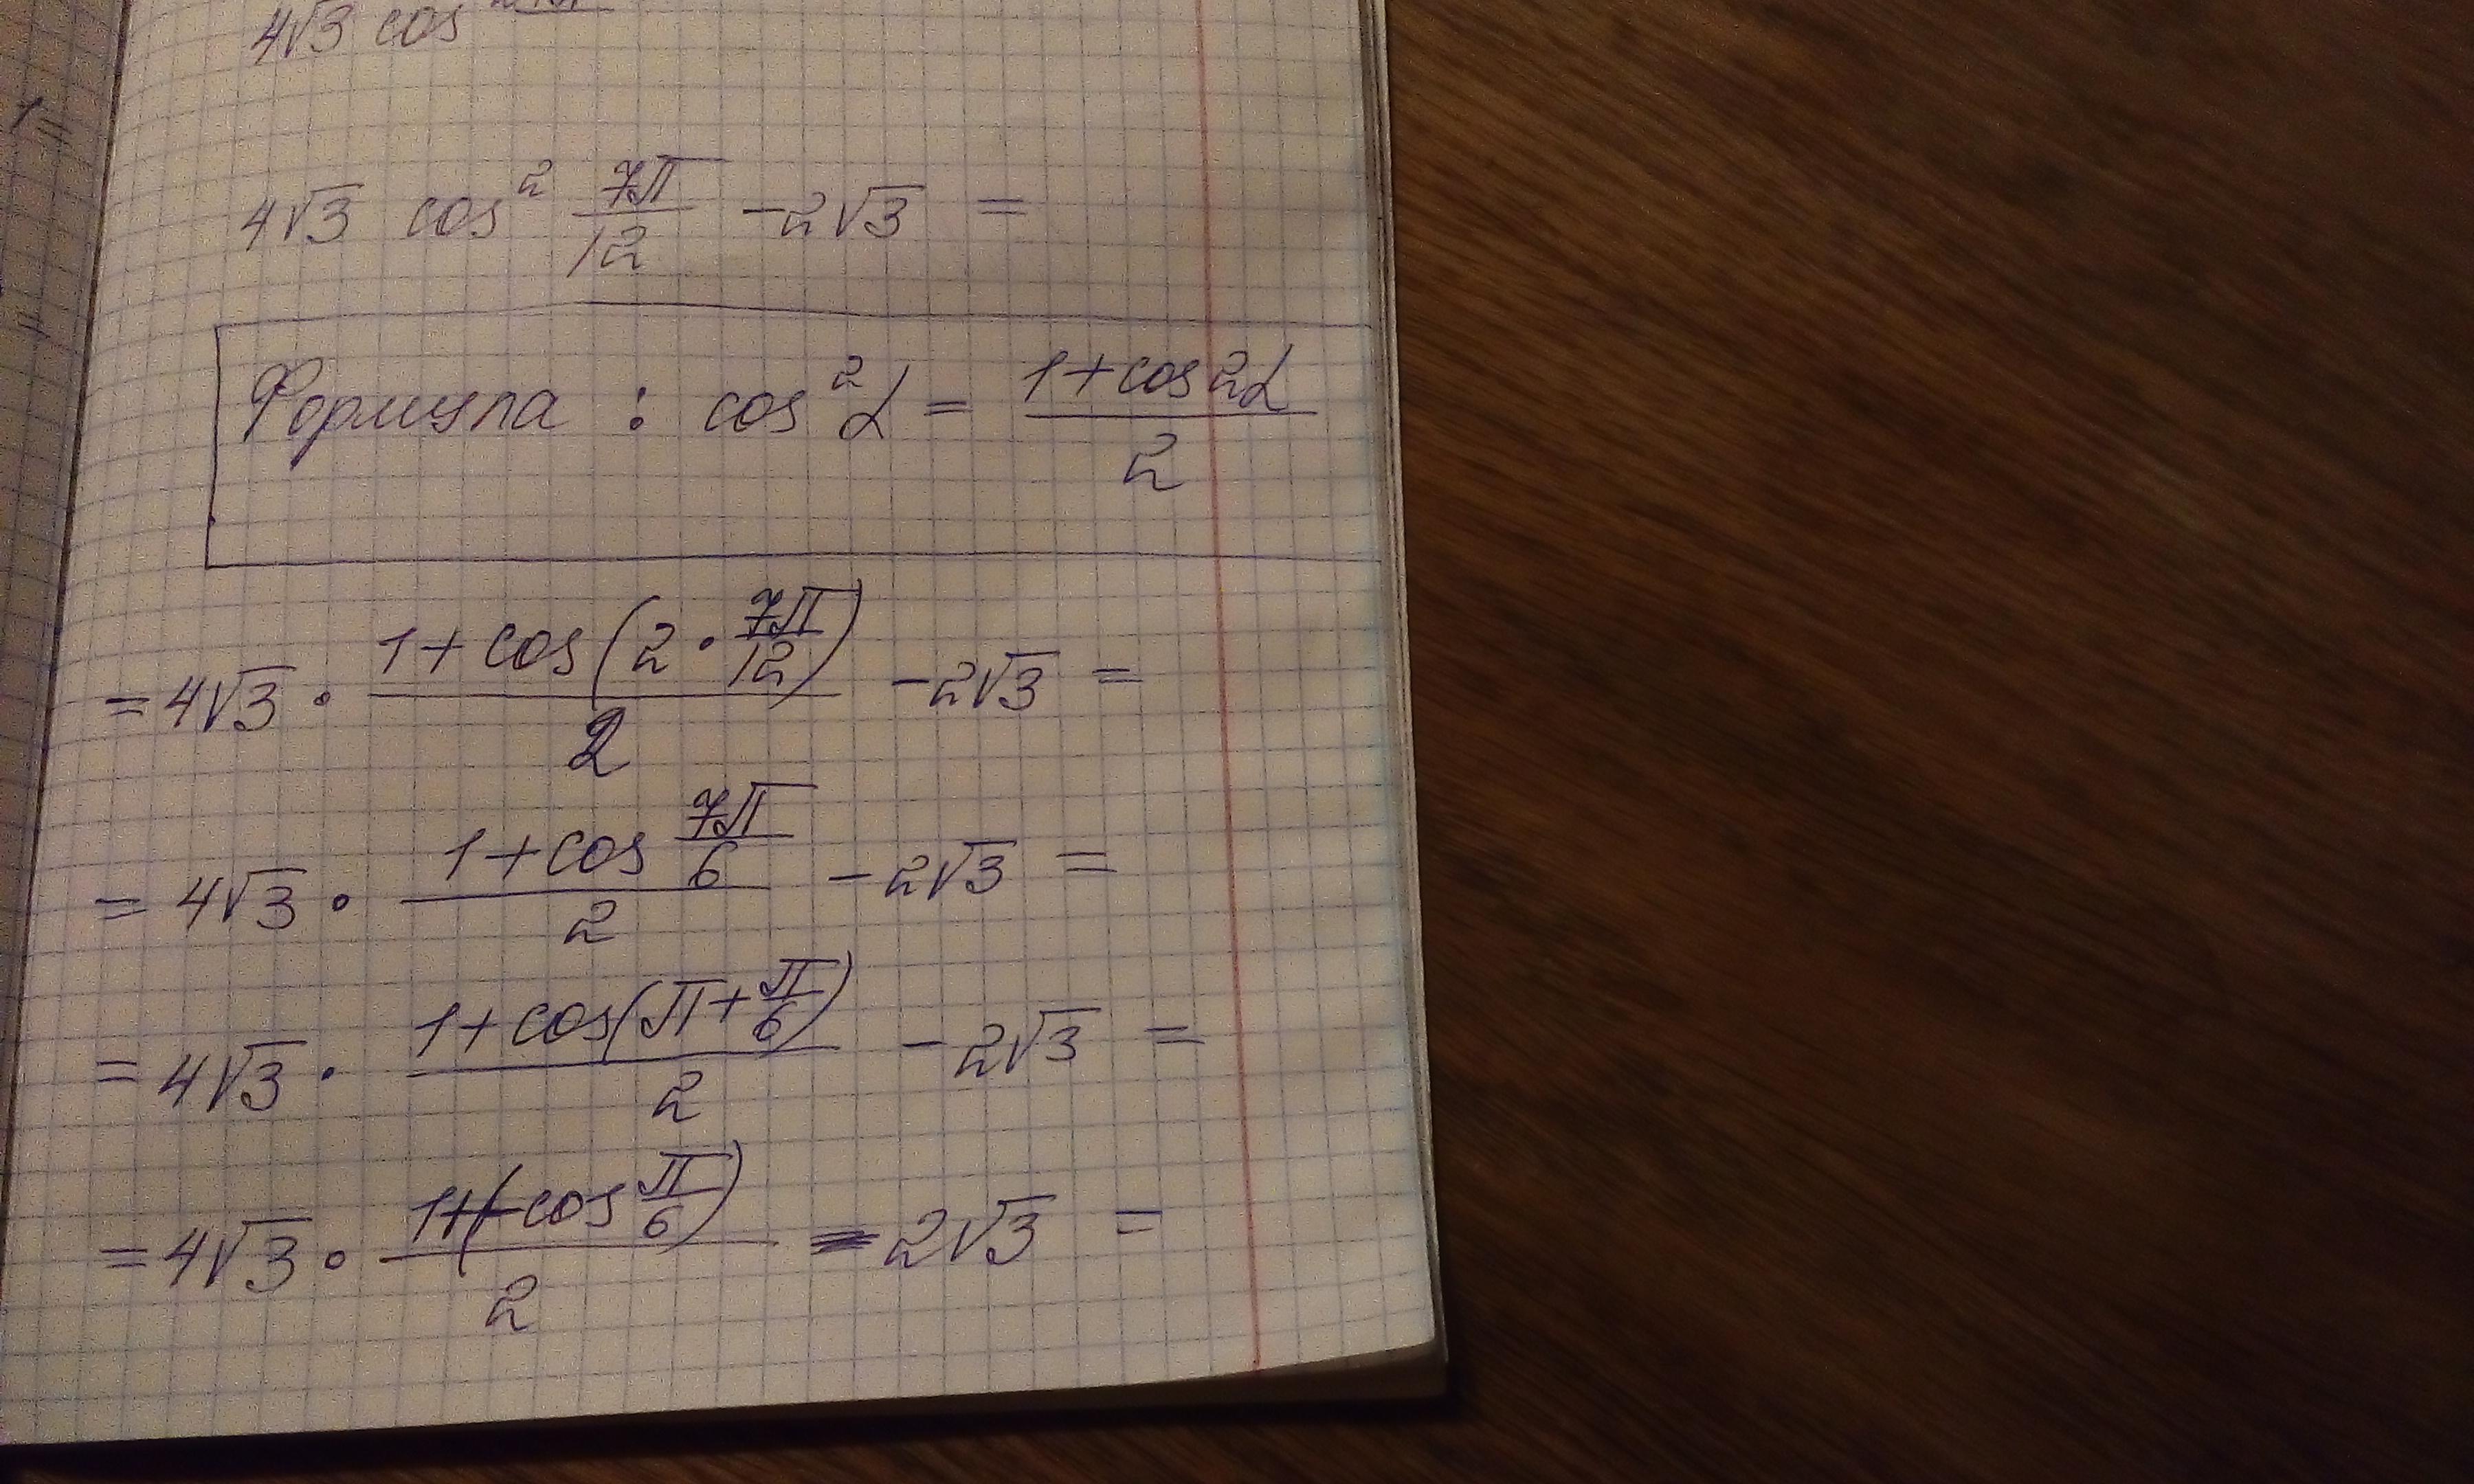 4√3 cos
4√3 cos² 7π/12 - 2√3 =
Формула : cos²α = (1+cos2α)/2
= 4√3 · (1+cos(2·7π/12))/2 - 2√3 =
= 4√3 · (1+cos 7π/6)/2 - 2√3 =
= 4√3 · (1+cos(π+π/6))/2 - 2√3 =
= 4√3 · (1+(-cos π/6))/2 - 2√3 =